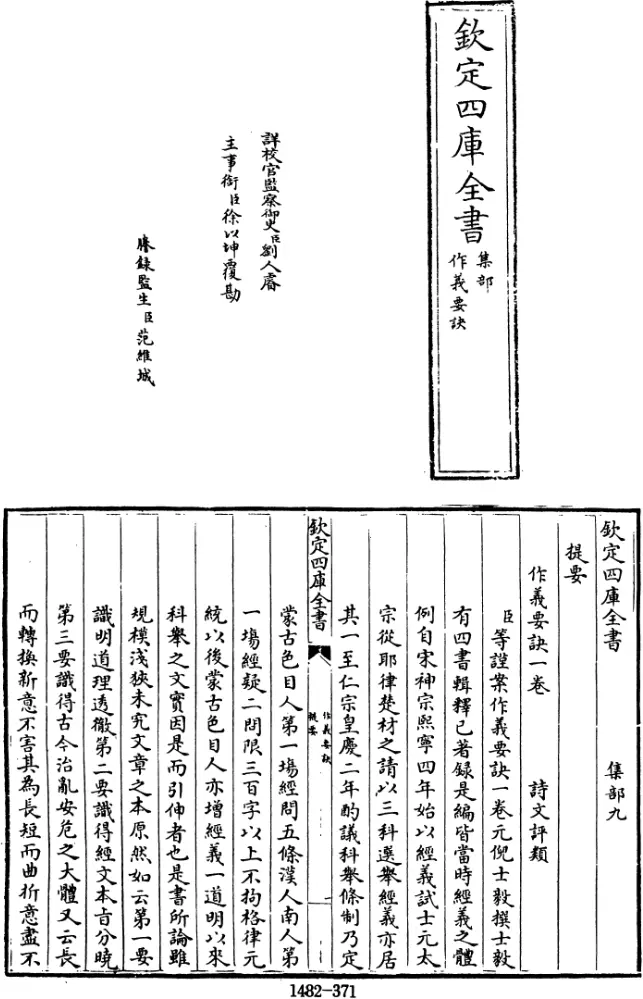 欽定四庫全書
集部
作義要訣
詳校官監察御史臣劉人睿
主事銜臣徐以坤覆勘
謄錄監生臣范維城
欽定四庫全書 集部九
提要
作義要訣一卷 詩文評類
臣等謹案作義要訣一卷元倪士毅撰士毅
有四書輯釋已著錄是編皆當時經義之體
例自宋神宗熙寧四年始以經義試士元太
宗從耶律楚材之請以三科選舉經義亦居
其一至仁宗皇慶二年酌議科舉條制乃定
欽定四庫全書
作義要訣
提要
一
蒙古色目人第一場經問五條漢人南人第
一場經疑二問限三百字以上不拘格律元
統以後蒙古色目人亦增經義一道明以來
科舉之文實因是而引伸者也是書所論雖
規模淺狹未究文章之本原然如云第一要
識明道理透徹第二要識得經文本旨分曉
第三要識得古今治亂安危之大體又云長
而轉換新意不害其為長短而曲折意盡不
1482-371